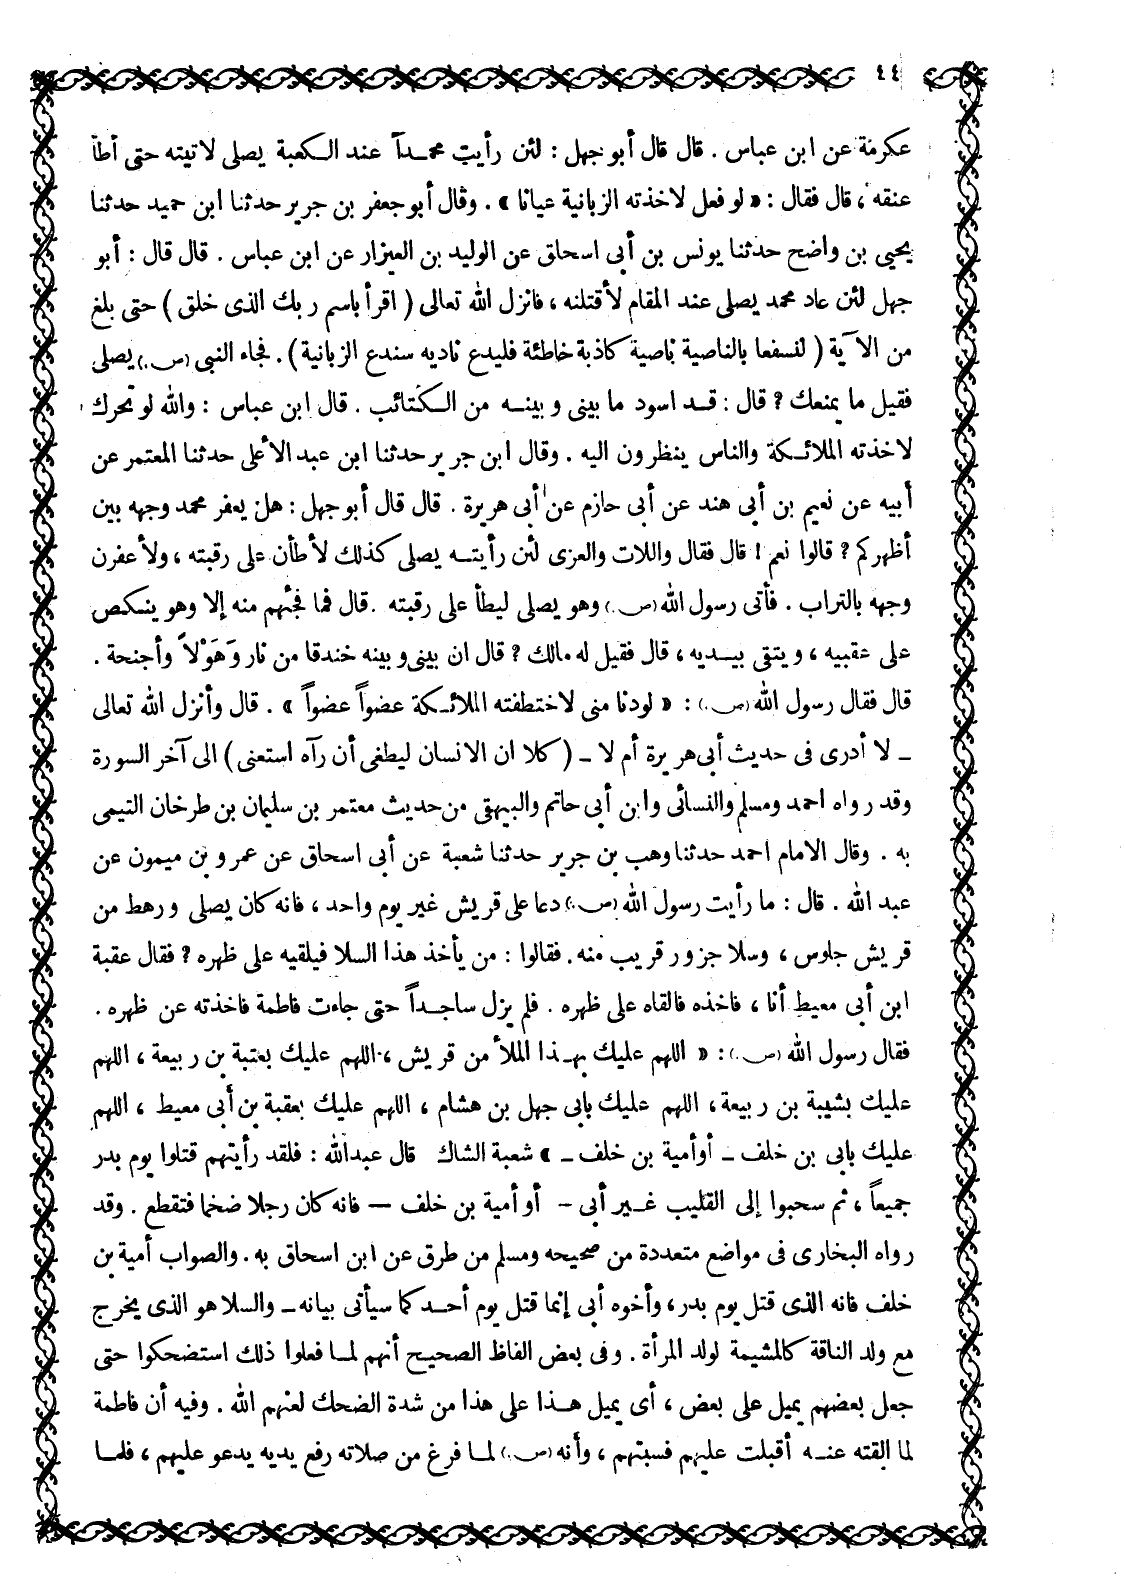 ٤٤
عكرمة عن ابن عباس . قال قال أبو جهل : لئن رأيت محمـداً عند الـكعبة يصلى لاتيته حتى أطأ
عنقه ، قال فقال : « لو فعل لاخذته الزبانية عيانا » . وقال أبو جعفر بن جرير حدثنا ابن حميد حدثنا
يحيى بن واضح حدثنا يونس بن أبى اسحاق عن الوليد بن العيزار عن ابن عباس . قال قال : أبو
جهل لئن عاد محمد يصلى عند المقام لأقتلنه ، فانزل الله تعالى ( اقرأ باسم ربك الذى خلق ) حتى بلغ
من الآية ( لنسفعا بالناصية ناصية كاذبة خاطئة فليدع ناديه سندع الزبانية ) . فجاء النبى (ص.) يصلى
فقيل ما يمنعك ? قال : قـد اسود ما بينى و بينـه من الـكتائب . قال ابن عباس : والله لو تحرك
لاخذته الملائـكة والناس ينظرون اليه . وقال ابن جرير حدثنا ابن عبد الأعلى حدثنا المعتمر عن
أبيه عن نعيم بن أبى هند عن أبى حازم عن أبى هريرة . قال قال أبو جهل : هل يعفر محمد وجهه بين
أظهركم ? قالوا نعم ! قال فقال واللات والعزى لئن رأيتـه يصلى كذلك لأطأن على رقبته ، ولأعفرن
وجهه بالتراب . فأتى رسول الله (ص.) وهو يصلى ليطأ على رقبته . قال فما فجئهم منه إلا وهو ينـكص
على عقبيه ، ويتقى بيـديه ، قال فقيل له مالك ? قال ان بينى و بينه خندقا من نار وَهَوْلاً وأجنحة .
قال فقال رسول الله (ص.) : « لودنا منى لاختطفته الملائـكة عضواً عضواً » . قال وأنزل الله تعالى
ـ لا أدرى فى حديث أبى هريرة أم لا ـ ( كلا ان الانسان ليطغى أن رآه استغنى ) الى آخر السورة
وقد رواه احمد ومسلم والنسائى وابن أبى حاتم والبيهقى من حديث معتمر بن سليمان بن طرخان التيمى
به . وقال الامام احمد حدثنا وهب بن جرير حدثنا شعبة عن أبى اسحاق عن عمرو بن ميمون عن
عبد الله . قال : ما رأيت رسول الله (ص.) دعا على قريش غير يوم واحد ، فانه كان يصلى ورهط من
قريش جلوس ، وسلا جزور قريب منه . فقالوا : من يأخذ هذا السلا فيلقيه على ظهره ? فقال عقبة
ابن أبى معيط أنا ، فاخذه فالقاه على ظهره . فلم يزل ساجـداً حتى جاءت فاطمة فاخذته عن ظهره .
فقال رسول الله (ص.) : « اللهم عليك بهـذا الملأ من قريش ، اللهم عليك بعتبة بن ربيعة ، اللهم
عليك بشيبة بن ربيعة ، اللهم عليك بابى جهل بن هشام ، اللهم عليك بعقبة بن أبى معيط ، اللهم
عليك بابى بن خلف ـ أو أمية بن خلف ـ » شعبة الشاك قال عبدالله : فلقد رأيتهم قتلوا يوم بدر
جميعاً ، ثم سحبوا إلى القليب غـير أبى – أو أمية بن خلف — فانه كان رجلا ضخما فتقطع . وقد
رواه البخارى فى مواضع متعددة من صحيحه ومسلم من طرق عن ابن اسحاق به . والصواب أمية بن
خلف فانه الذى قتل يوم بدر ، وأخوه أبى إنما قتل يوم أحـد كما سيأتى بيانه ـ والسلا هو الذى يخرج
مع ولد الناقة كالمشيمة لولد المرأة . وفى بعض الفاظ الصحيح أنهم لمـا فعلوا ذلك استضحكوا حتى
جعل بعضهم يميل على بعض ، أى يميل هـذا على هذا من شدة الضحك لعنهم الله . وفيه أن فاطمة
لما القته عنـه أقبلت عليهم فسبتهم ، وأنه (ص.) لمـا فرغ من صلاته رفع يديه يدعو عليهم ، فلمـا